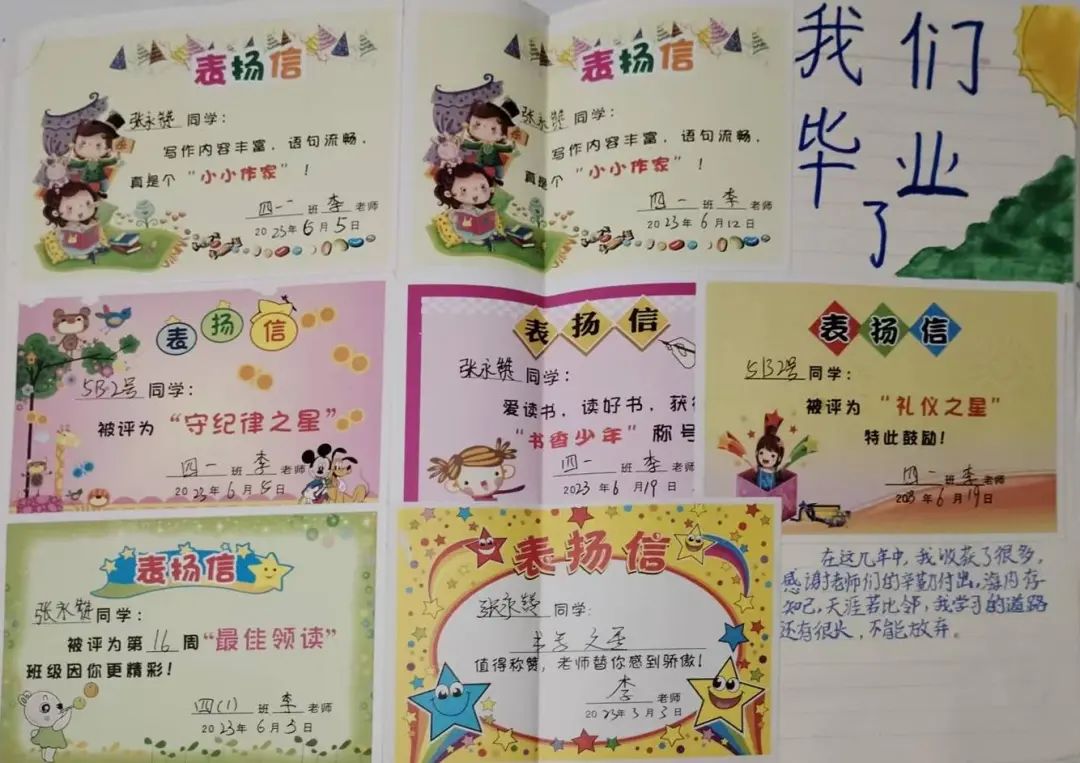 表扬信
张永赞同学：
写作内容丰富，语句流畅，
真是个“小小作家”！
四一班李老师
2023年6月5日
表扬信
张永赞同学：
写作内容丰富，语句流畅，
真是个“小小作家”！
四一班李老师
2023年6月12日
我们
毕业
了
表扬信
5132号同学：
被评为“守纪律之星”
四一班李老师
2023年6月5日
表扬信
张永赞同学：
爱读书，读好书，获
“书香少年”称号
四一班李老师
2023年6月19日
表扬信
5132号同学：
被评为“礼仪之星”
特此鼓励！
四一班李老师
2023年6月19日
表扬信
张永赞同学：
被评为第16周“最佳领读”
班级因你更精彩！
四(1)班李老师
2023年6月5日
表扬信
张永赞同学：
之星
值得称赞，老师替你感到骄傲！
李老师
2023年3月3日
在这几年中，我收获了很多，
感谢老师们的辛勤付出。海内存
知己，天涯若比邻，我学习的道路
还有很长，不能放弃。